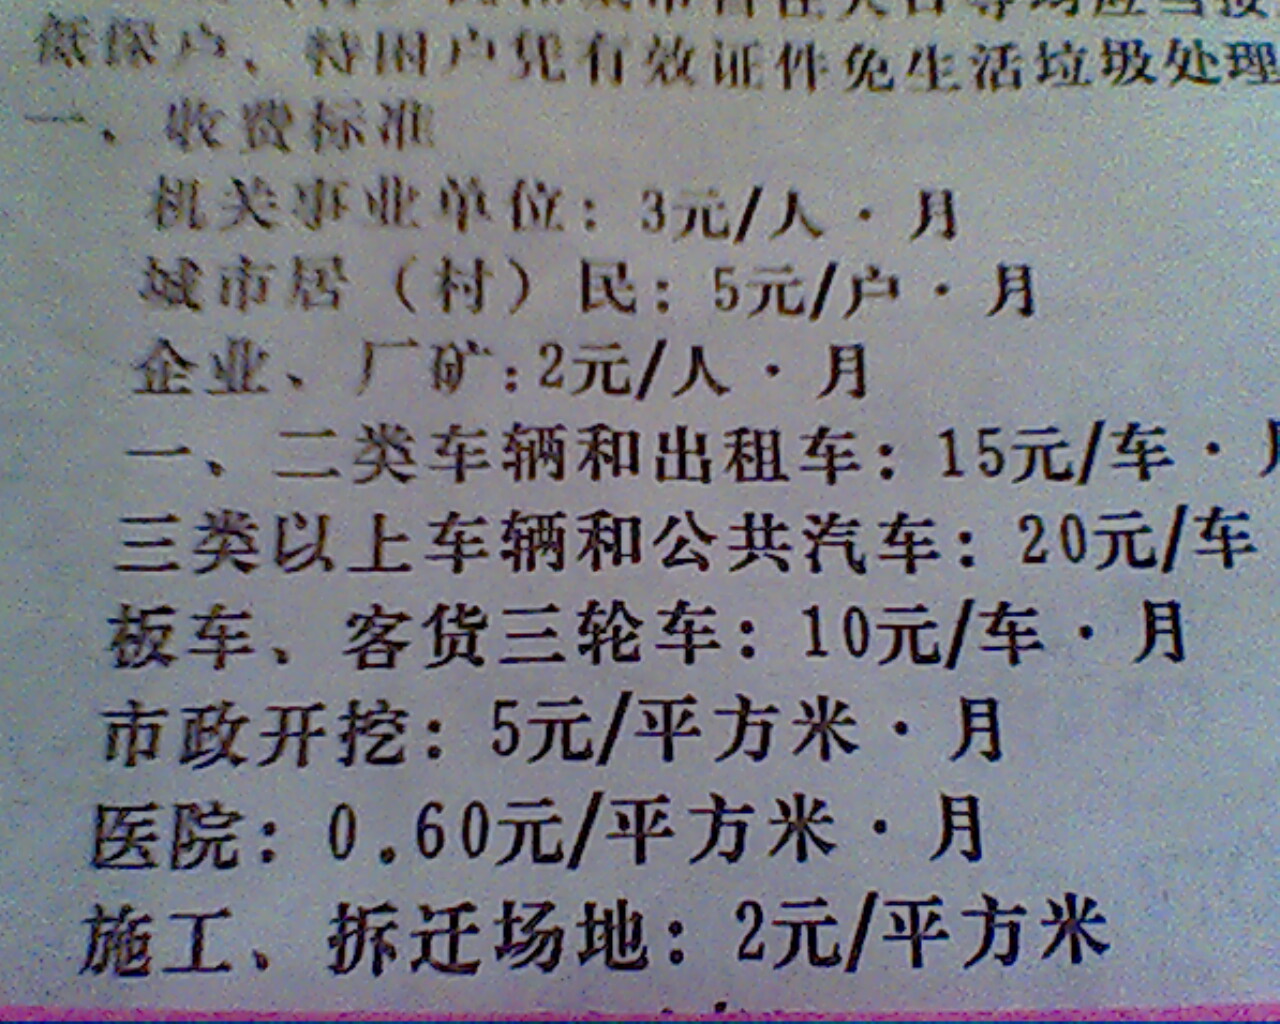 低保户、特困户凭有效证件免生活垃圾处理
一、收费标准
机关事业单位：3元/人·月
城市居（村）民：5元/户·月
企业、厂矿：2元/人·月
一、二类车辆和出租车：15元/车·月
三类以上车辆和公共汽车：20元/车
板车、客货三轮车：10元/车·月
市政开挖：5元/平方米·月
医院：0.60元/平方米·月
施工、拆迁场地：2元/平方米